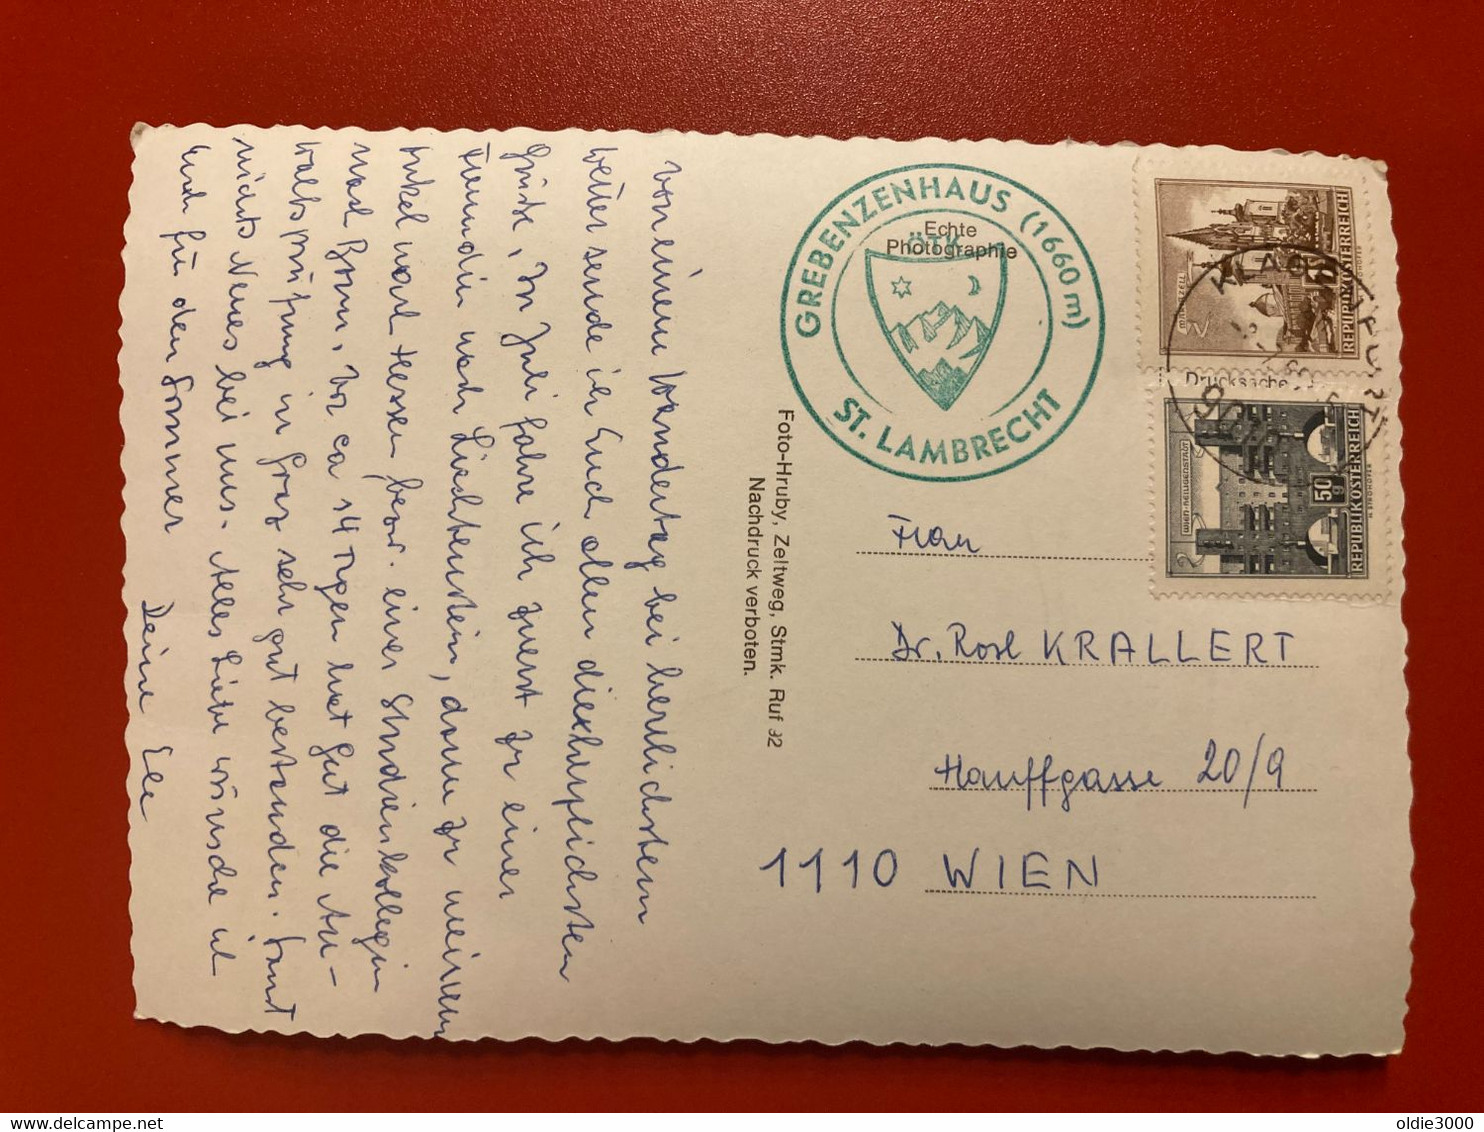 von einem Wandertag bei herrlichstem
Wetter sende ich Euch allen die herzlichsten
Grüße. Im Juli fahre ich zuerst zu einer
Freundin nach Liechtenstein, dann zu meinem
Onkel nach Hessen bezw. einer Studienkollegin
nach Bonn. Vor ca 14 Tagen hat gut die An-
waltsprüfung in Graz sehr gut bestanden. Sonst
nichts Neues bei uns. Alles Liebe wünsche ich
Euch für den Sommer
Deine Ele
GREBENZENHAUS (1660 m)
ST. LAMBRECHT
ÖTK
Echte
Photographie
Foto-Hruby, Zeltweg, Stmk. Ruf 92
Nachdruck verboten.
REPUBLIK ÖSTERREICH
MARIAZELL
KLAGENFURT
Drucksache
REPUBLIK ÖSTERREICH
50 g
WIEN-HEILIGENSTADT
Frau
Dr. Rosl KRALLERT
Hauffgasse 20/9
1110 WIEN
delcampe.net
oldie3000